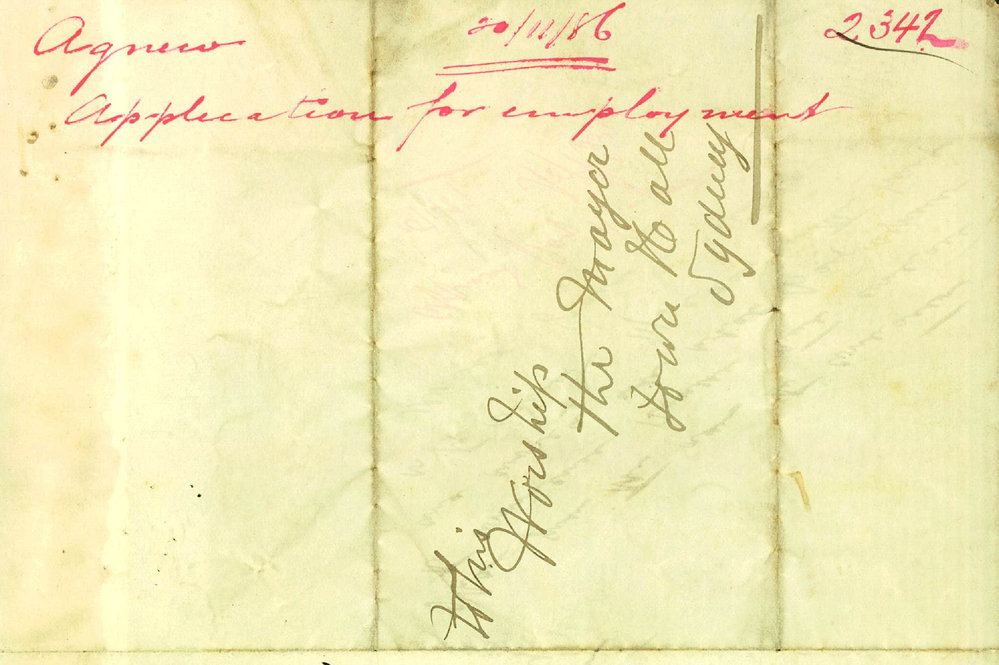 Agnew 20/11/86 2342
Application for employment
His
Worship
The Mayor
Town Hall
Sydney